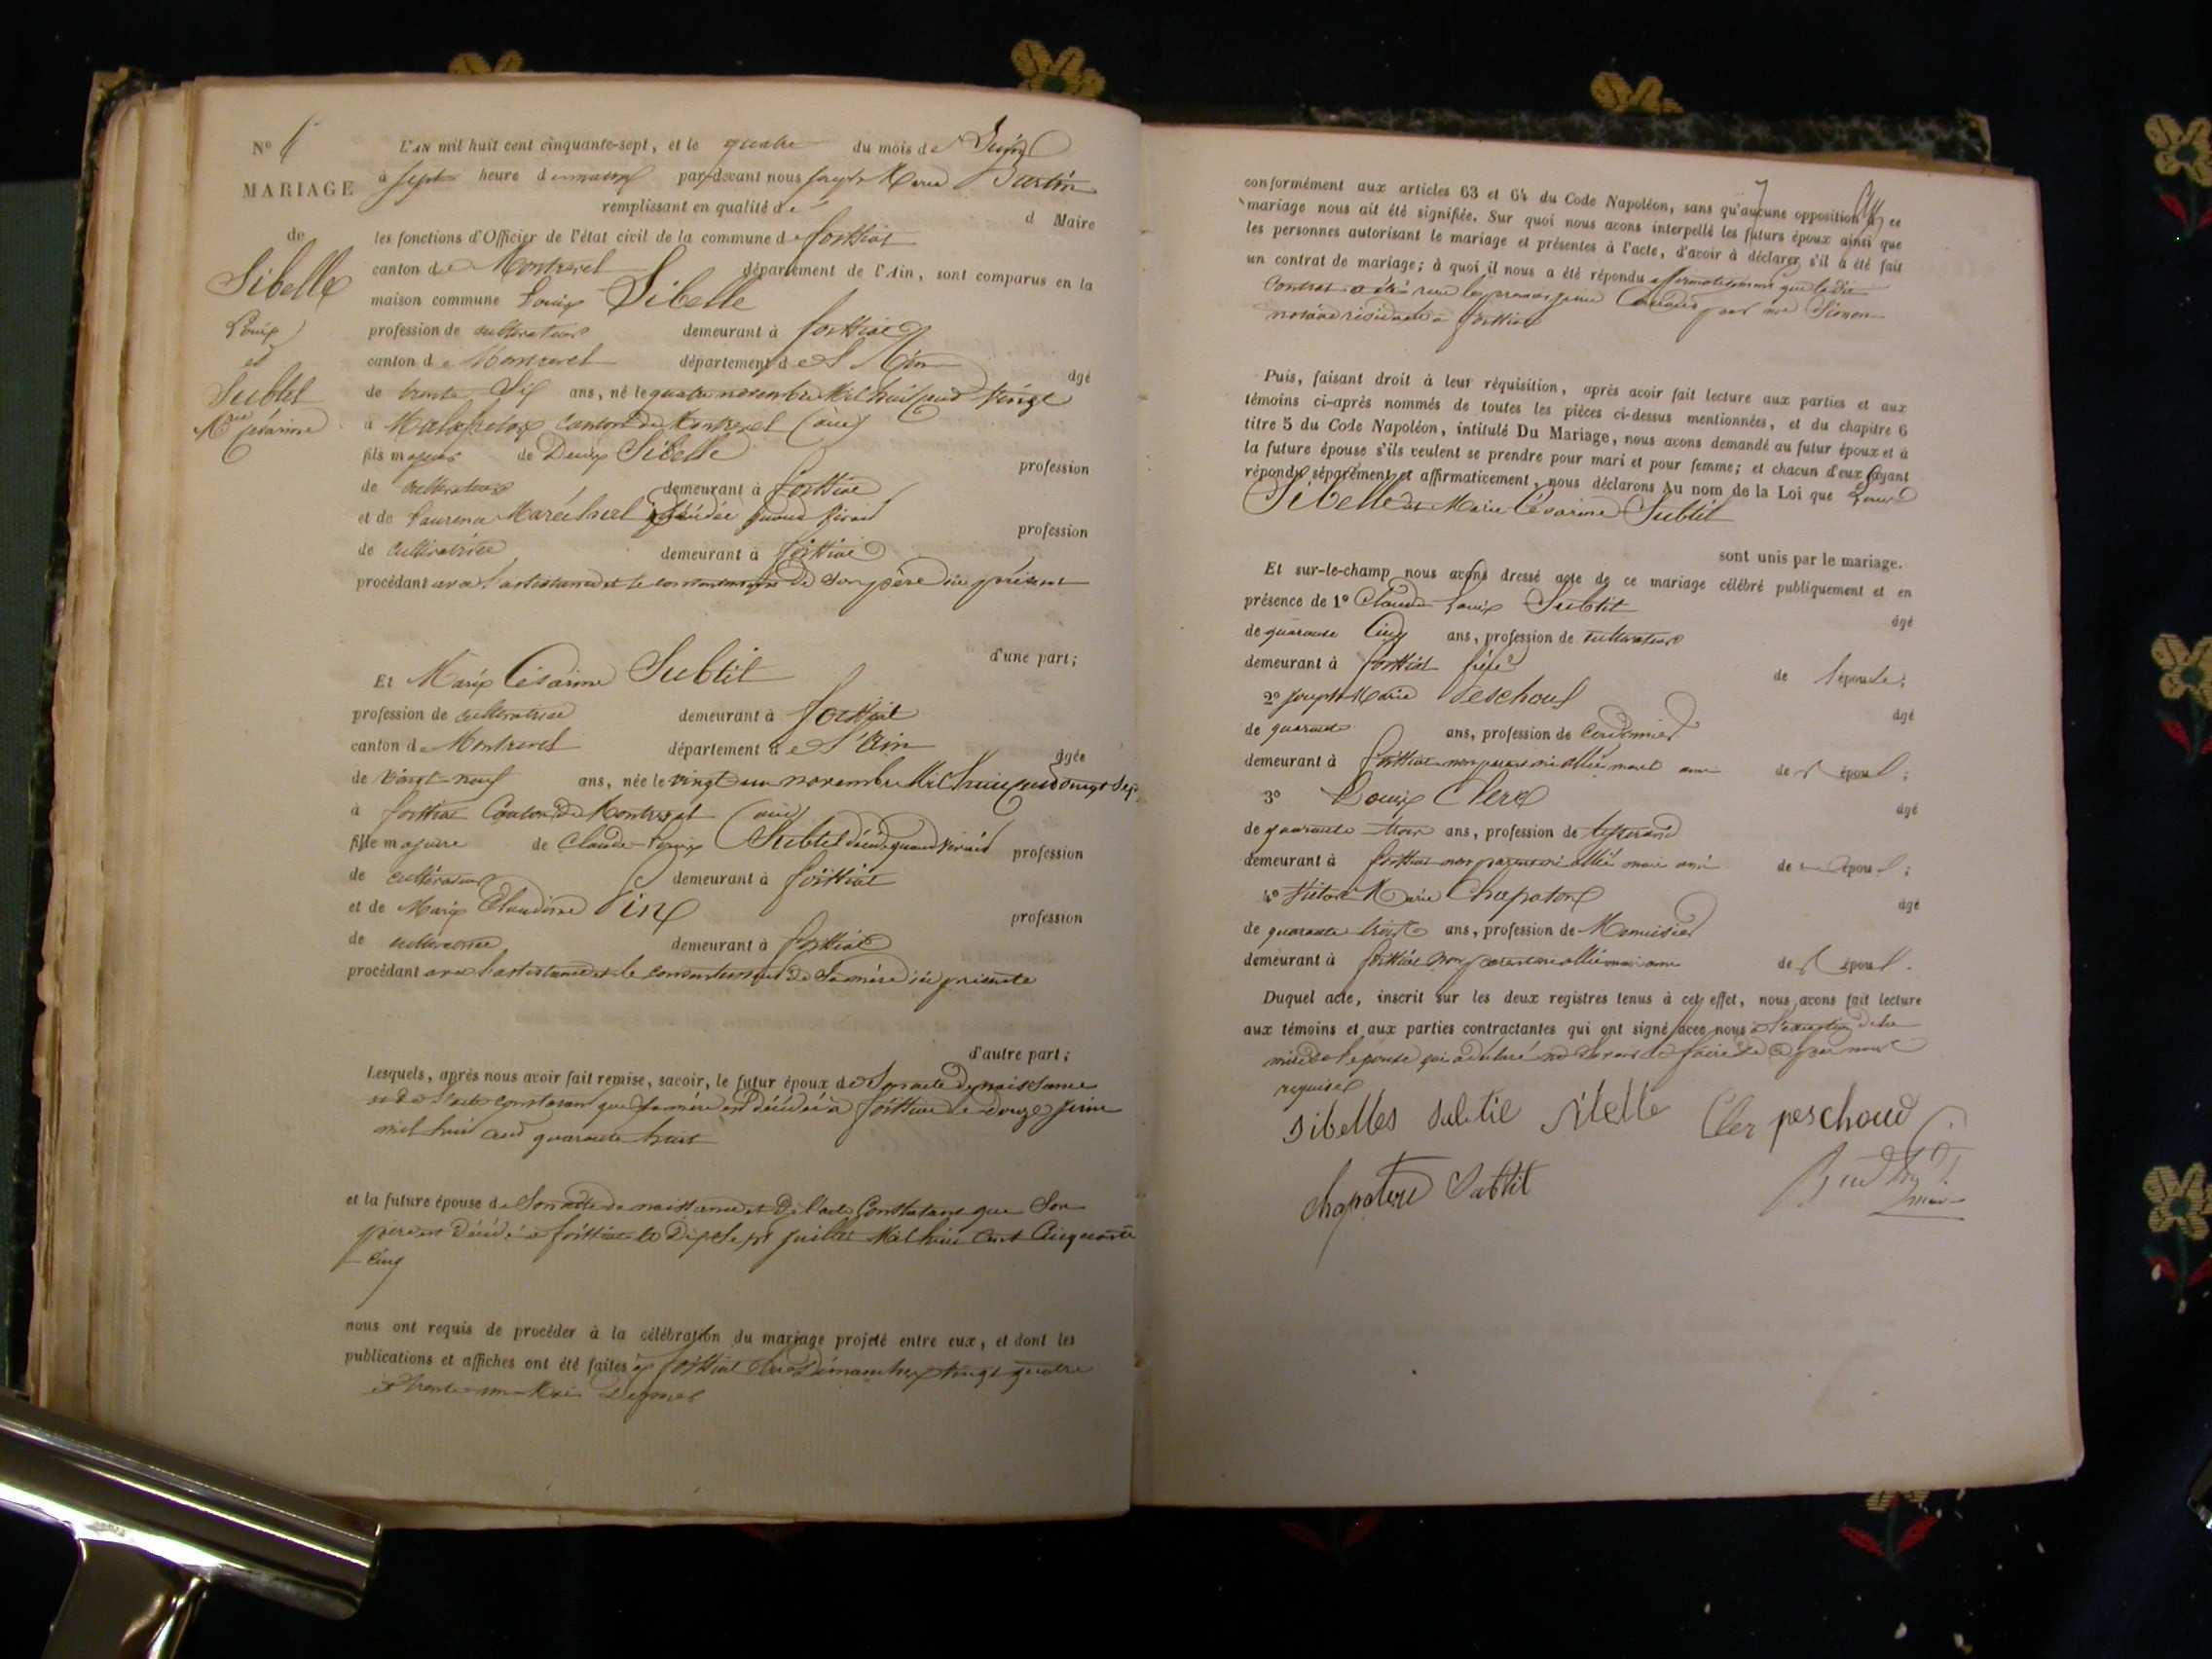 N° 6
MARIAGE
de
Sibelle
Louis
et
Subtil
Mie Césarine
L'AN mil huit cent cinquante-sept, et le quatre du mois de Juin
à sept heure du matin par-devant nous Joseph Marie
remplissant en qualité de d Maire
les fonctions d'Officier de l'état civil de la commune de foissiat
canton de Montrevel département de l'Ain, sont comparus en la
maison commune Louis Sibelle
profession de cultivateur demeurant à foissiat
canton de Montrevel département de l'Ain âgé
de trente Six ans, né le quatre novembre Mil huit cent vingt
à Malafretaz Canton de Montrevel (ain)
fils majeur de Denis Sibelle profession
de cultivateur demeurant à foissiat
et de Laurence Maréchal décédée quand vivait profession
de cultivatrice demeurant à foissiat
procédant avec l'assistance et le consentement de son père ici présent
d'une part;
Et Marie Césarine Subtil
profession de cultivatrice demeurant à foissiat
canton de Montrevel département de l'Ain âgée
de vingt-neuf ans, née le vingt un novembre Mil huit cent vingt sept
à foissiat Canton de Montrevel (ain)
fille majeure de Claude-Louis Subtil décédé quand vivait profession
de cultivateur demeurant à foissiat
et de Marie Claudine Pin profession
de cultivatrice demeurant à foissiat
procédant avec l'assistance et le consentement de Sa mère ici présente
d'autre part;
Lesquels, après nous avoir fait remise, savoir, le futur époux de Son acte de naissance
et de l'acte constatant que sa mère est décédée à foissiat le douze juin
mil huit cent quarante huit
et la future épouse de Son acte de naissance et de l'acte Constatant que Son
père est décédé à foissiat le Dix Sept juillet Mil huit Cent Cinquante
cinq
nous ont requis de procéder à la célébration du mariage projeté entre eux, et dont les
publications et affiches ont été faites à foissiat les Dimanches vingt quatre
et trente-un Mai Dernier
conformément aux articles 63 et 64 du Code Napoléon, sans qu'aucune opposition à ce
mariage nous ait été signifiée. Sur quoi nous avons interpellé les futurs époux ainsi que
les personnes autorisant le mariage et présentes à l'acte, d'avoir à déclarer s'il a été fait
un contrat de mariage; à quoi il nous a été répondu affirmativement que le dit
Contrat a été reçu le premier juin Courant par me Simon
notaire résidant à foissiat
Puis, faisant droit à leur réquisition, après avoir fait lecture aux parties et aux
témoins ci-après nommés de toutes les pièces ci-dessus mentionnées, et du chapitre 6
titre 5 du Code Napoléon, intitulé Du Mariage, nous avons demandé au futur époux et à
la future épouse s'ils veulent se prendre pour mari et pour femme; et chacun d'eux ayant
répondu séparément et affirmativement, nous déclarons Au nom de la Loi que Louis
Sibelle et Marie Césarine Subtil
sont unis par le mariage.
Et sur-le-champ nous avons dressé acte de ce mariage célébré publiquement et en
présence de 1° Claude Louis Subtil âgé
de quarante Cinq ans, profession de cultivateur
demeurant à foissiat frère de l'épouse;
2° Joseph Marie Peschoud âgé
de quarante ans, profession de Cordonnier
demeurant à foissiat non parent ni allié mais ami de l'époux;
3° Louis Clerc âgé
de quarante trois ans, profession de tisserand
demeurant à foissiat non parent ni allié mais ami de l'époux;
4° Victor Marie Chapaton âgé
de quarante trois ans, profession de Menuisier
demeurant à foissiat non parent ni allié mais ami de l'époux.
Duquel acte, inscrit sur les deux registres tenus à cet effet, nous avons fait lecture
aux témoins et aux parties contractantes qui ont signé avec nous à l'exception de la
mère de l'épouse qui a déclaré ne savoir le faire de ce par nous
requise
Sibelles Subtil Sibelle Cler peschoud
chapaton Subtil
maire